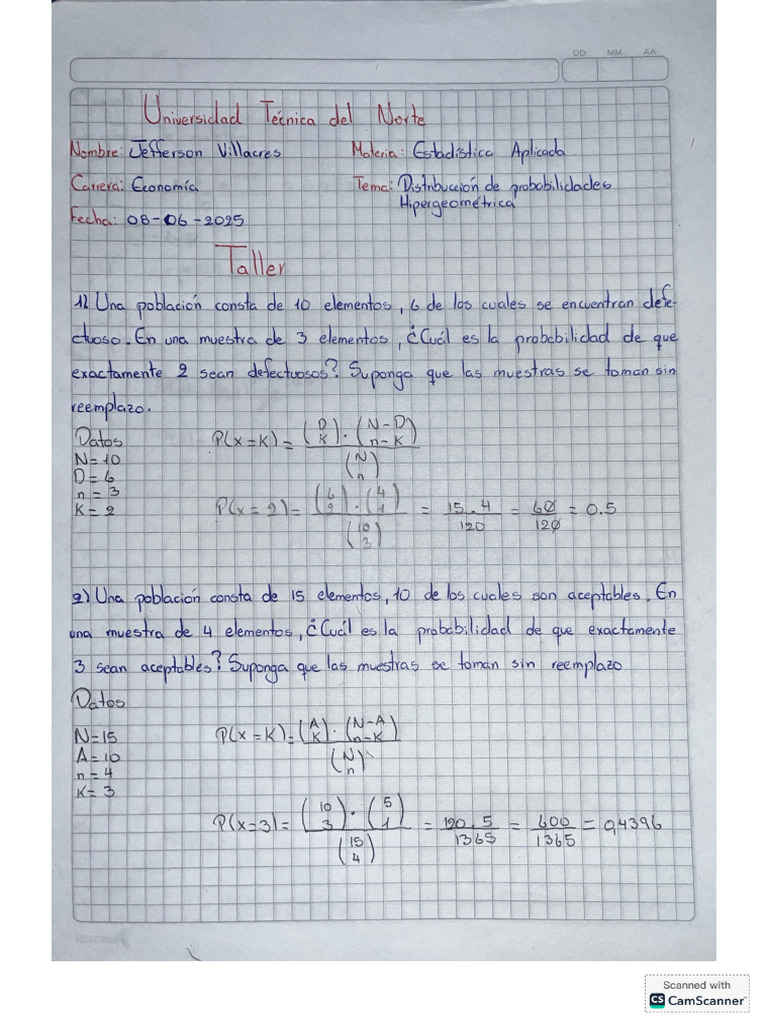 DD MM AA
Universidad Técnica del Norte
Nombre: Jefferson Villacres Materia: Estadística Aplicada
Carrera: Economía Tema: Distribucción de probabilidades
Hipergeométrica
Fecha: 08-06-2025
Taller
1) Una población consta de 10 elementos, 6 de los cuales se encuentran defe-
ctuoso. En una muestra de 3 elementos, ¿Cuál es la probabilidad de que
exactamente 2 sean defectuosos? Suponga que las muestras se toman sin
reemplazo.
Datos
N=10
D=6
n=3
K=2
P(x=K) = (D K) · (N-D n-K) / (N n)
P(x=2) = (6 2) · (4 1) / (10 3) = 15.4 / 120 = 60 / 120 = 0.5
2) Una población consta de 15 elementos, 10 de los cuales son aceptables. En
una muestra de 4 elementos, ¿Cuál es la probabilidad de que exactamente
3 sean aceptables? Suponga que las muestras se toman sin reemplazo
Datos
N=15
A=10
n=4
K=3
P(x=K) = (A K) · (N-A n-K) / (N n)
P(x=3) = (10 3) · (5 1) / (15 4) = 120.5 / 1365 = 600 / 1365 = 0,4396
Scanned with
CS CamScanner